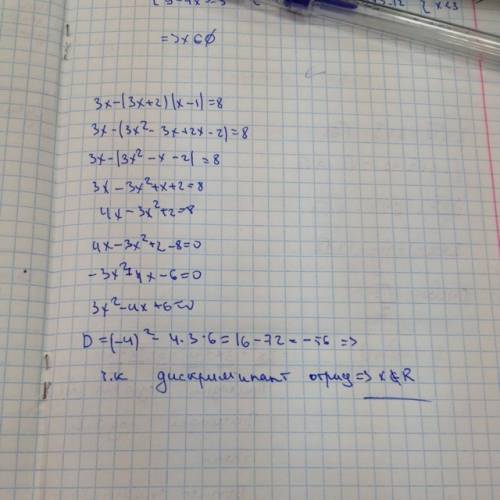 => x ∈ ∅
3x-(3x+2)(x-1)=8
3x-(3x²-3x+2x-2)=8
3x-(3x²-x-2)=8
3x-3x²+x+2=8
4x-3x²+2=8
4x-3x²+2-8=0
-3x²+4x-6=0
3x²-4x+6=0
D=(-4)²-4·3·6=16-72=-56 =>
т.к дискриминант отриц => x∉R